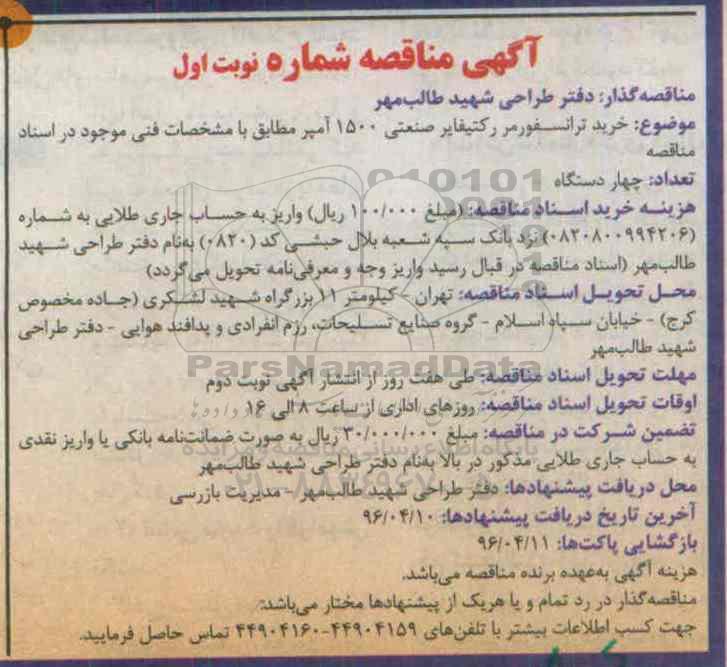 آگهی مناقصه شماره نوبت اول
مناقصه‌گذار: دفتر طراحی شهید طالب‌مهر
موضوع: خرید ترانسفورمر رکتیفایر صنعتی ۱۵۰۰ آمپر مطابق با مشخصات فنی موجود در اسناد
مناقصه
تعداد: چهار دستگاه
هزینه خرید اسناد مناقصه: (مبلغ ۱۰۰/۰۰۰ ریال) واریز به حساب جاری طلایی به شماره
(۰۸۲۰۸۰۰۹۹۴۲۰۶) نزد بانک سپه شعبه بلال حبشی کد (۰۸۲۰) به‌نام دفتر طراحی شهید
طالب‌مهر (اسناد مناقصه در قبال رسید واریز وجه و معرفی‌نامه تحویل می‌گردد)
محل تحویل اسناد مناقصه: تهران - کیلومتر ۱۱ بزرگراه شهید لشکری (جاده مخصوص
کرج) - خیابان سپاه اسلام - گروه صنایع تسلیحات، رزم انفرادی و پدافند هوایی - دفتر طراحی
شهید طالب‌مهر
ParsNamadData
مهلت تحویل اسناد مناقصه: طی هفت روز از انتشار آگهی نوبت دوم
اوقات تحویل اسناد مناقصه: روزهای اداری از ساعت ۸ الی ۱۶
تضمین شرکت در مناقصه: مبلغ ۳۰/۰۰۰/۰۰۰ ریال به صورت ضمانت‌نامه بانکی یا واریز نقدی
به حساب جاری طلایی مذکور در بالا به‌نام دفتر طراحی شهید طالب‌مهر
محل دریافت پیشنهادها: دفتر طراحی شهید طالب‌مهر - مدیریت بازرسی
آخرین تاریخ دریافت پیشنهادها: ۹۶/۰۴/۱۰
بازگشایی پاکت‌ها: ۹۶/۰۴/۱۱
هزینه آگهی به‌عهده برنده مناقصه می‌باشد.
مناقصه‌گذار در رد تمام و یا هریک از پیشنهادها مختار می‌باشد.
جهت کسب اطلاعات بیشتر با تلفن‌های ۴۴۹۰۴۱۵۹-۴۴۹۰۴۱۶۰ تماس حاصل فرمایید.